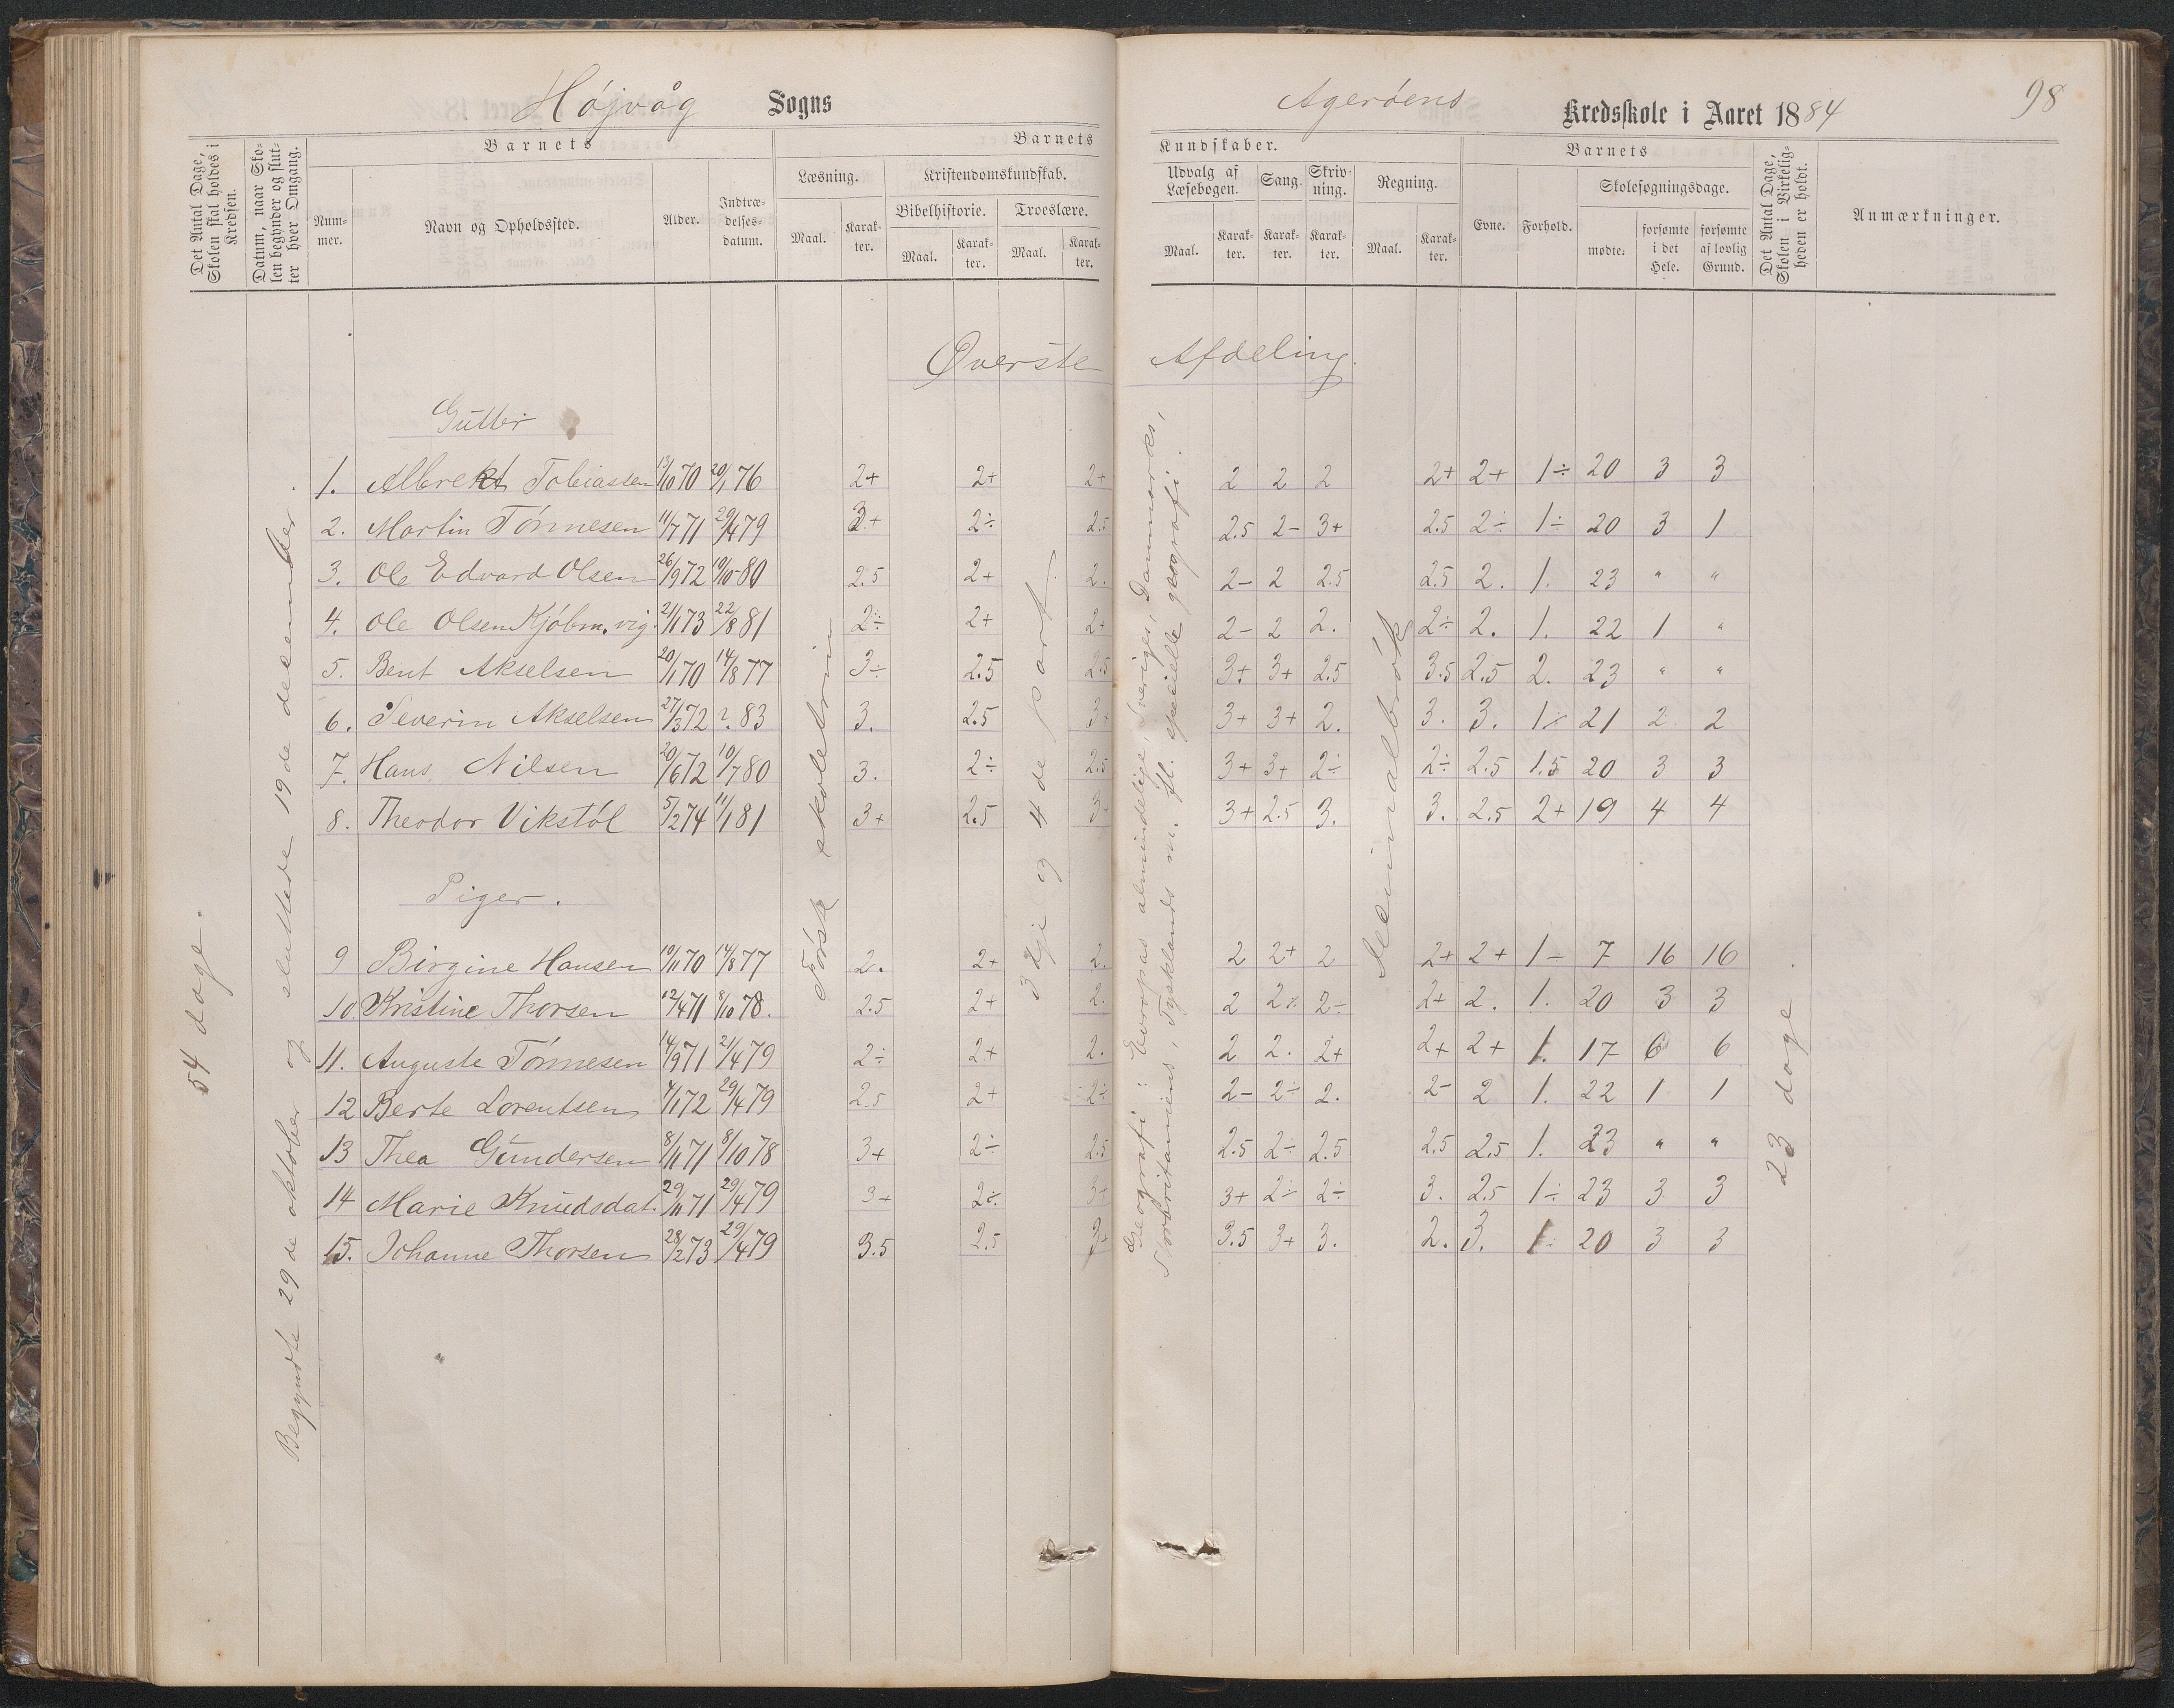 Højvåg Sogns Agerøens Kredsskole i Aaret 1884 98
Det Antal Dage, Skolen skal holdes i Kredsen.
Datum, naar Skolen begynder og slutter hver Omgang.
Barnets
Nummer.
Navn og Opholdssted.
Alder.
Indtrædelsesdatum.
Barnets Kundskaber.
Læsning.
Maal.
Karakter.
Kristendomskundskab.
Bibelhistorie.
Maal.
Karakter.
Troeslære.
Maal.
Karakter.
Udvalg af Læsebogen.
Maal.
Karakter.
Sang.
Karakter.
Skrivning.
Karakter.
Regning.
Maal.
Karakter.
Barnets
Evne.
Forhold.
Skolesøgningsdage.
mødte.
forsømte i det Hele.
forsømte af lovlig Grund.
Det Antal Dage, Skolen i Virkeligheden er holdt.
Anmærkninger.
Øverste Afdeling.
54 dage.
Begyndte 29de oktober og sluttede 19de december.
Første skoletrin
3dje og 4de part.
Geografi: Europas almindelige, Sveriges, Danmarks,
Storbritaniens, Tysklands m. fl. specielle geografi.
23 dage.
Gutter
1. Albrekt Tobiassen 13/10 70 20/1 76 2+ 2+ 2+ 2 2 2 2+ 2+ 1÷ 20 3 3
2. Martin Tönnesen 11/7 71 29/4 79 3+ 2÷ 2.5 2.5 2- 3+ 2.5 2÷ 1÷ 20 3 1
3. Ole Edvard Olsen 26/9 72 19/10 80 2.5 2+ 2. 2- 2 2.5 2.5 2. 1. 23 " "
4. Ole Olsen Kjöbm.vig. 21/1 73 22/8 81 2÷ 2+ 2+ 2- 2 2. 2÷ 2. 1. 22 1 "
5. Bent Akselsen 20/1 70 14/8 77 3÷ 2.5 2.5 3+ 3+ 2.5 3.5 2.5 2. 23 " "
6. Severin Akselsen 27/3 72 ? 83 3. 2.5 3+ 3+ 3+ 2. 3. 3. 1÷ 21 2 2
7. Hans Nilsen 20/6 72 19/7 80 3. 2÷ 2.5 3+ 3+ 2÷ 2÷ 2.5 1.5 20 3 3
8. Theodor Vikstøl 5/2 74 11/1 81 3+ 2.5 3- 3+ 2.5 3. 3. 2.5 2+ 19 4 4
Piger.
9 Birgine Hansen 19/11 70 14/8 77 2. 2+ 2. 2 2+ 2 2+ 2+ 1÷ 7 16 16
10 Kristine Thorsen 12/4 71 8/10 78. 2.5 2+ 2. 2 2÷ 2÷ 2+ 2. 1. 20 3 3
11. Auguste Tönnesen 14/9 71 21/4 79 2÷ 2+ 2. 2 2. 2+ 2+ 2+ 1. 17 6 6
12 Berte Lorentsen 4/1 72 29/4 79 2.5 2+ 2÷ 2- 2÷ 2. 2- 2 1. 22 1 1
13 Thea Gundersen 8/11 71 8/10 78 3+ 2÷ 2.5 2.5 2÷ 2.5 2.5 2.5 1. 23 " "
14 Marie Knudsdat. 29/11 71 29/4 79 3+ 2÷ 3+ 3+ 2÷ 2÷ 3. 2.5 1÷ 23 3 3
15. Johanne Thorsen 28/2 73 29/4 79 3.5 2.5 3+ 3.5 3+ 3. 2. 3. 1÷ 20 3 3